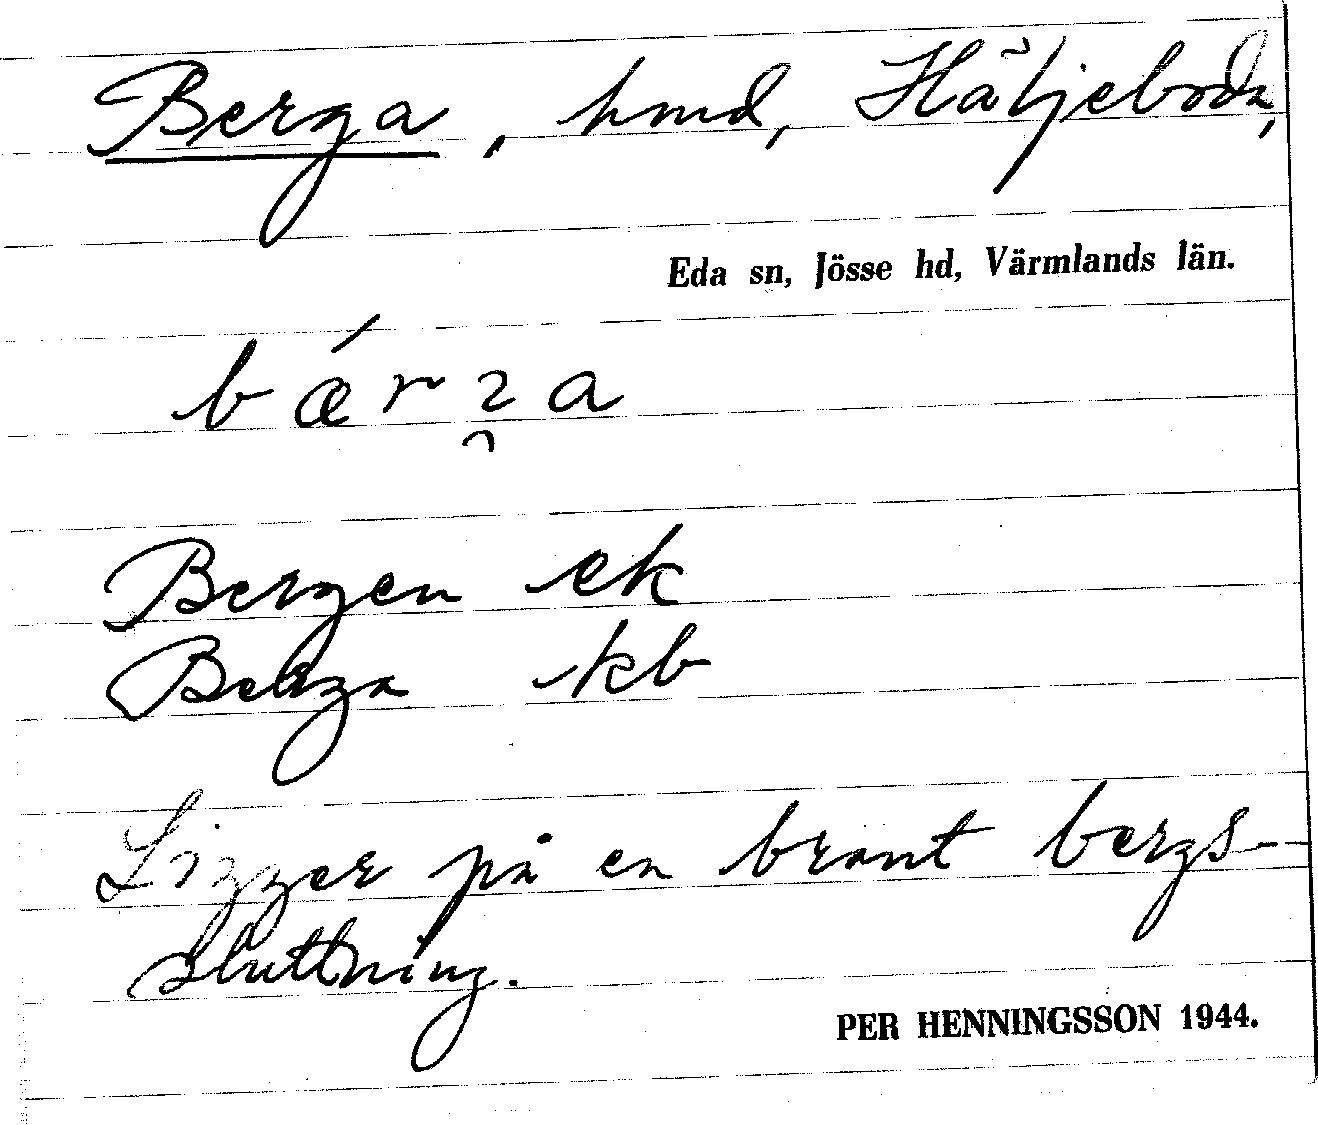 Berga, hmd, Häljeboda,
Eda sn, Jösse hd, Värmlands län.
Bergen ek
Berga kb
Ligger på en brant bergs-
sluttning.
PER HENNINGSSON 1944.